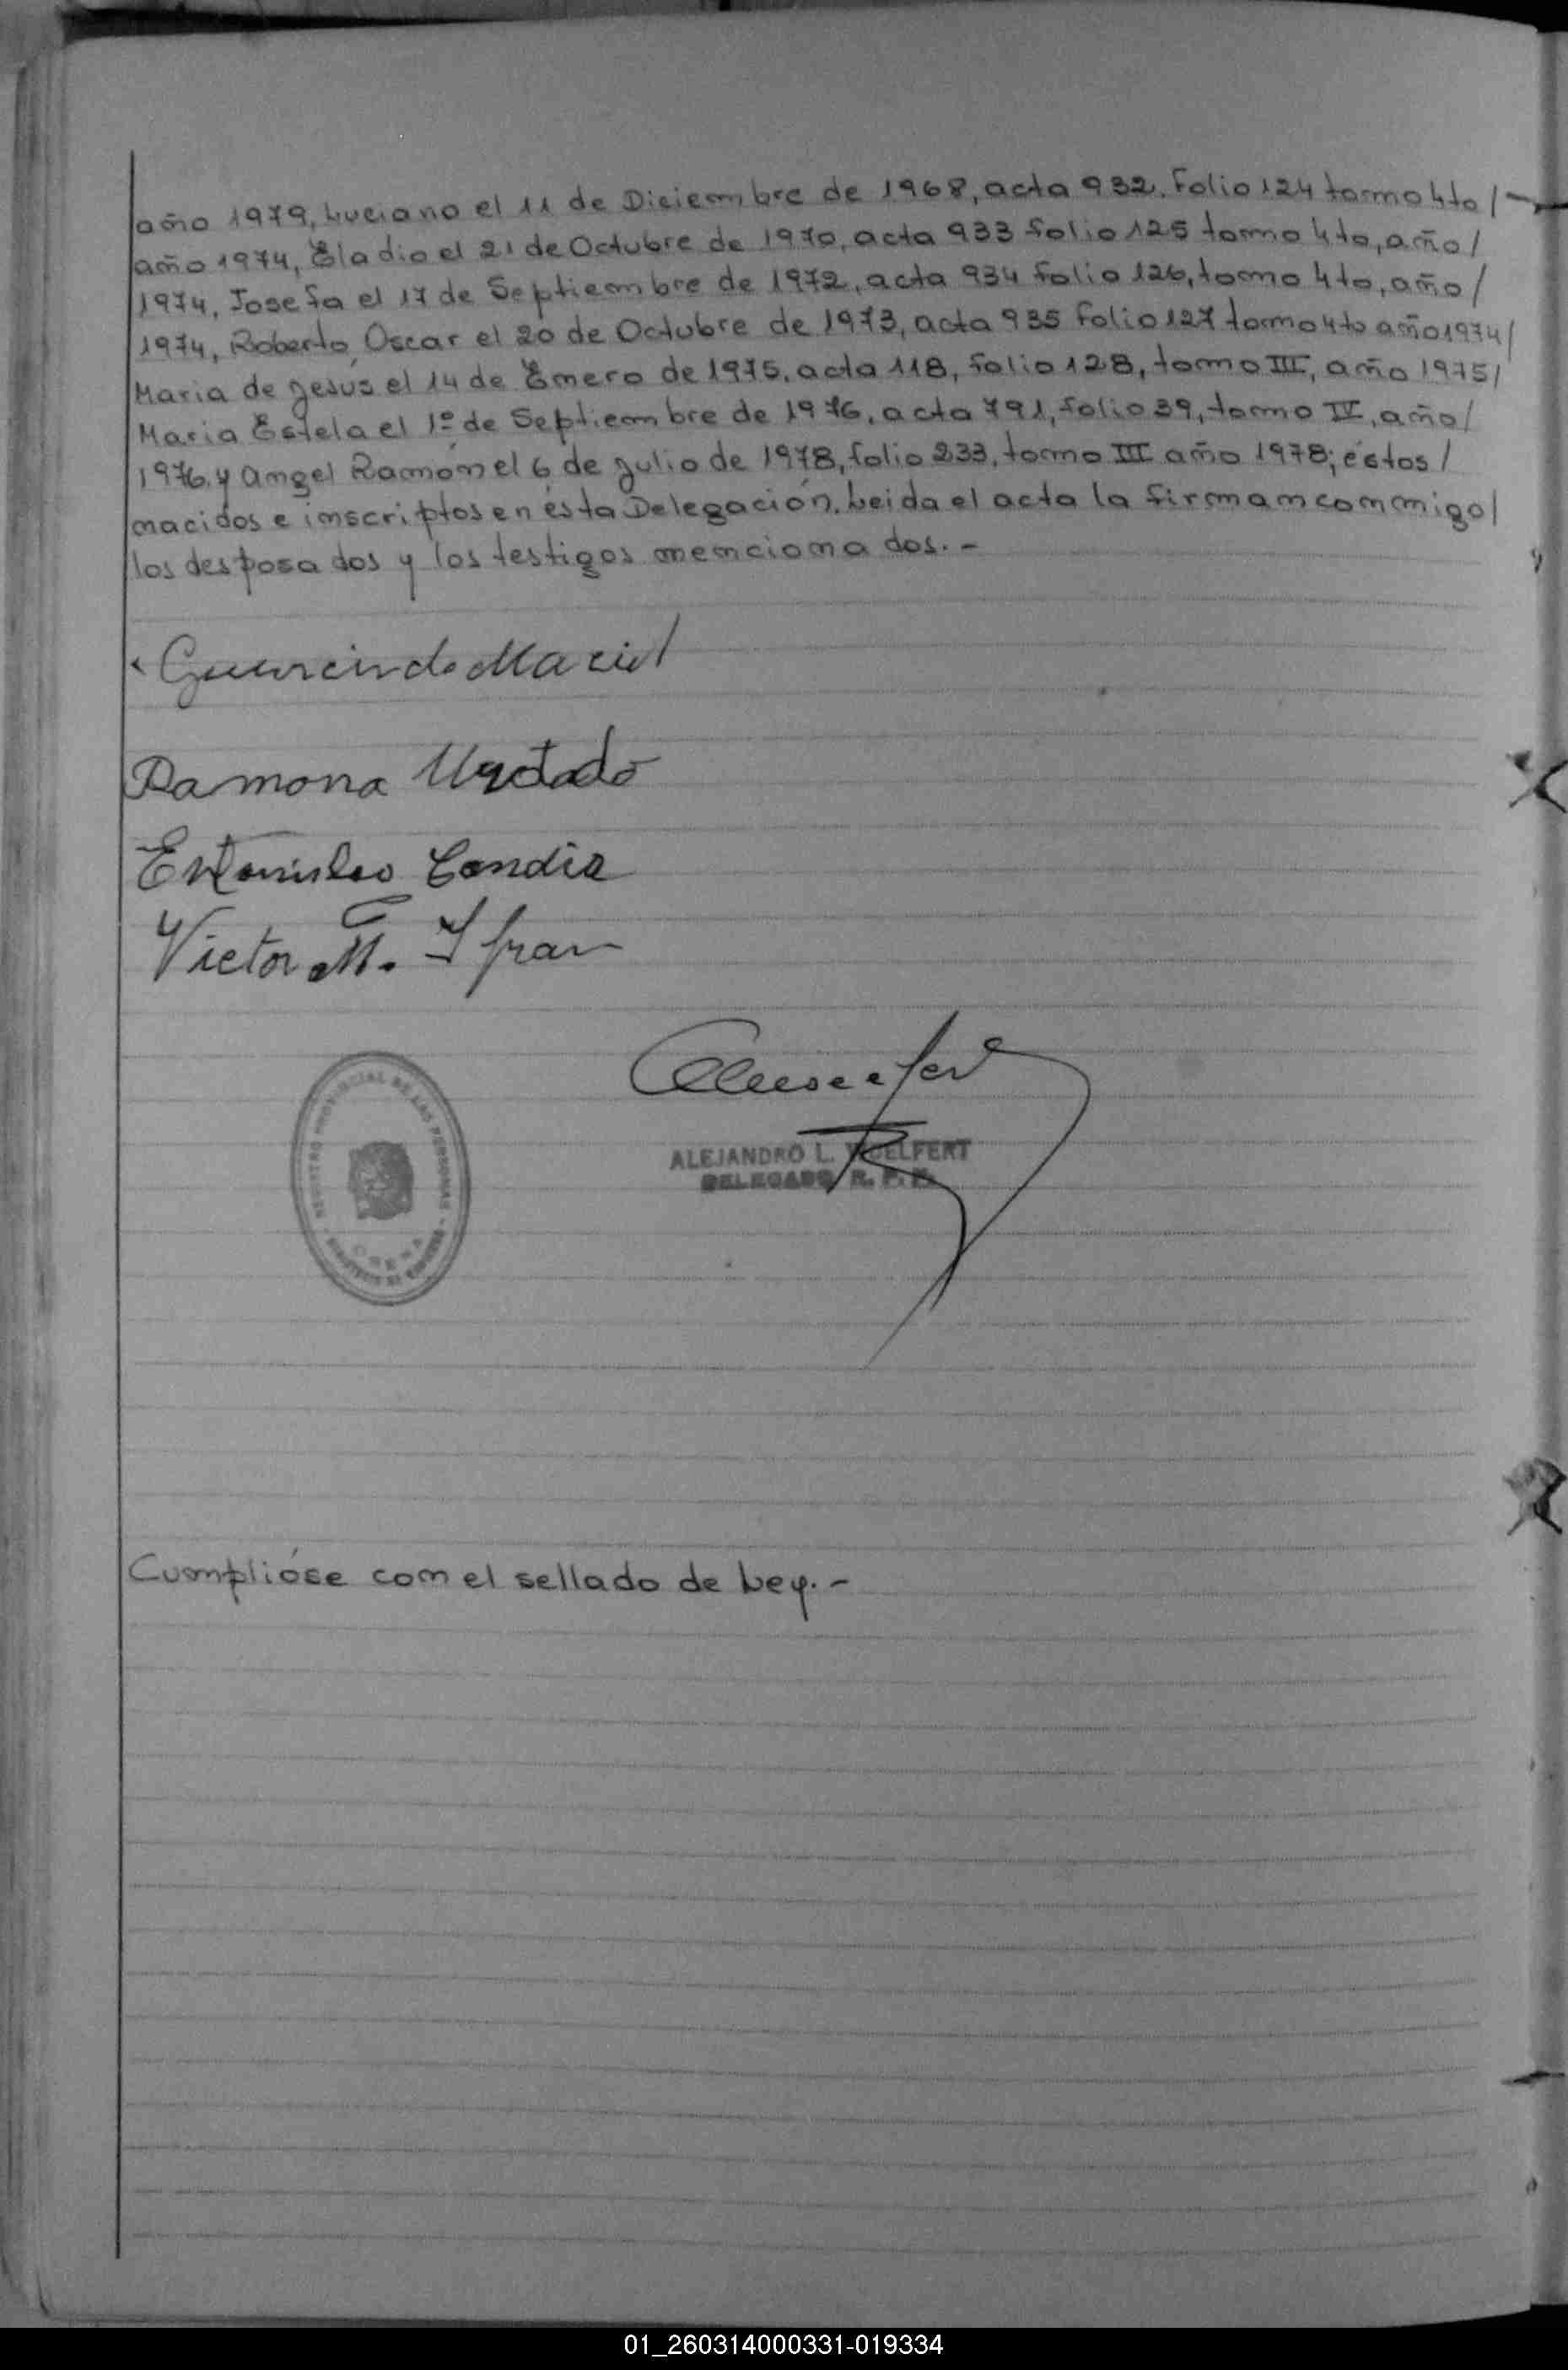 año 1979, Luciano el 11 de Diciembre de 1968, acta 932. Folio 124 tomo 4to/
año 1974, Eladio el 21 de Octubre de 1970, acta 933 folio 125 tomo 4to, año/
1974, Josefa el 17 de Septiembre de 1972, acta 934 folio 126, tomo 4to, año/
1974, Roberto Oscar el 20 de Octubre de 1973, acta 935 folio 127 tomo 4to año 1974/
Maria de Jesús el 14 de Enero de 1975, acta 118, folio 128, tomo III, año 1975/
Maria Estela el 1º de Septiembre de 1976, acta 791, folio 39, tomo IV, año/
1976, y Angel Ramón el 6 de Julio de 1978, folio 233, tomo III año 1978; éstos/
nacidos e inscriptos en ésta Delegación. Leida el acta la firman conmigo/
los desposados y los testigos mencionados.-
Gumercindo Maciel
Ramona Urdtado
Estanislao Candia
Victor M. Ifran
REGISTRO PROVINCIAL DE LAS PERSONAS
ALEJANDRO L. WOELFERT
DELEGADO R. P. P.
Cumplióse con el sellado de Ley.-
01_260314000331-019334